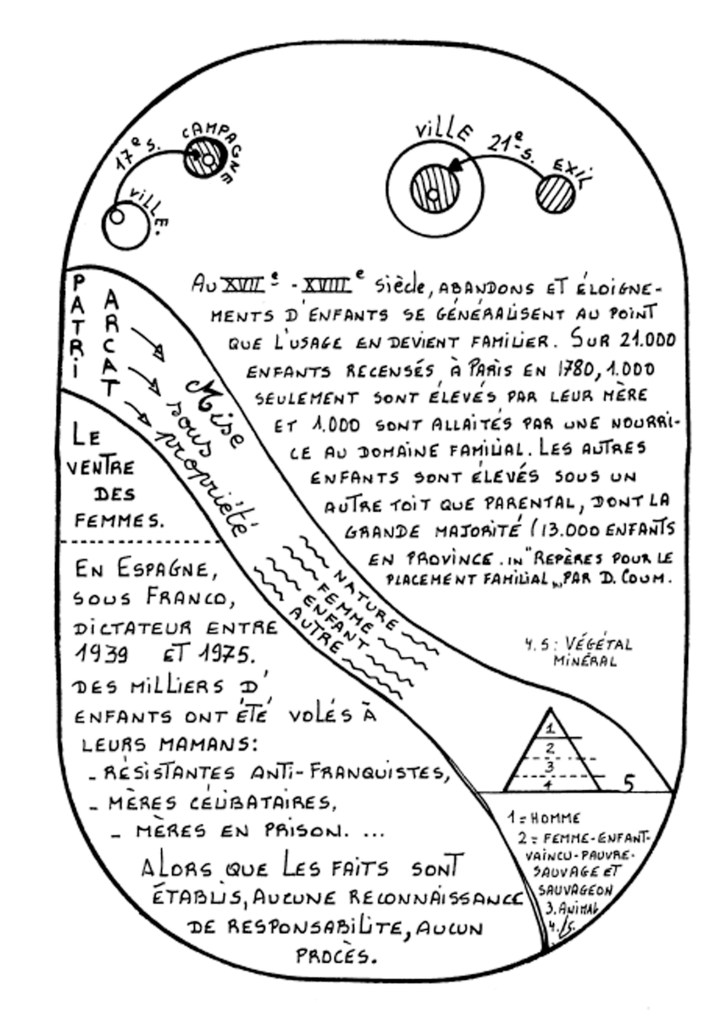 17e s.
CAMPAGNE
VILLE.
VILLE
21e s.
EXIL
PATRI
ARCAT
Mise
sous
propriété
AU XVIIe - XVIIIe SIÈCLE, ABANDONS ET ÉLOIGNE-
MENTS D'ENFANTS SE GÉNÉRALISENT AU POINT
QUE L'USAGE EN DEVIENT FAMILIER. SUR 21.000
ENFANTS RECENSÉS À PARIS EN 1780, 1.000
SEULEMENT SONT ÉLEVÉS PAR LEUR MÈRE
ET 1.000 SONT ALLAITÉS PAR UNE NOURRI-
CE AU DOMAINE FAMILIAL. LES AUTRES
ENFANTS SONT ÉLEVÉS SOUS UN
AUTRE TOIT QUE PARENTAL, DONT LA
GRANDE MAJORITÉ (13.000 ENFANTS
EN PROVINCE. IN "REPÈRES POUR LE
PLACEMENT FAMILIAL", PAR D. COUM.
LE
VENTRE
DES
FEMMES.
NATURE
FEMME
ENFANT
AUTRE
EN ESPAGNE,
SOUS FRANCO,
DICTATEUR ENTRE
1939 ET 1975.
DES MILLIERS D'
ENFANTS ONT ÉTÉ VOLÉS À
LEURS MAMANS:
- RÉSISTANTES ANTI-FRANQUISTES,
- MÈRES CÉLIBATAIRES,
- MÈRES EN PRISON. ...
ALORS QUE LES FAITS SONT
ÉTABLIS, AUCUNE RECONNAISSANCE
DE RESPONSABILITE, AUCUN
PROCÈS.
4.5: VÉGÉTAL
MINÉRAL
1
2
3
4
5
1 = HOMME
2 = FEMME-ENFANT-
VAINCU-PAUVRE-
SAUVAGE ET
SAUVAGEON
3. ANIMAL
4./5.